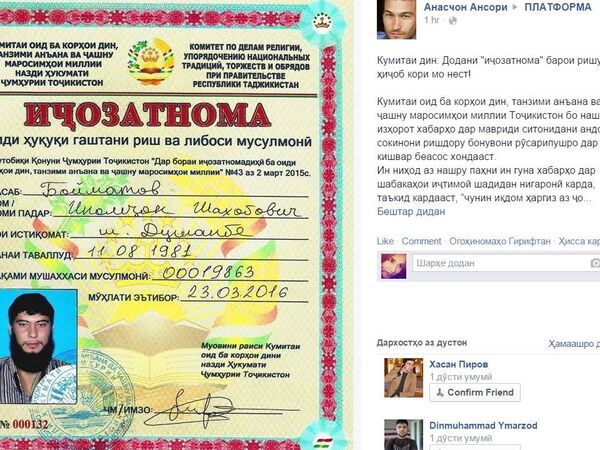 КУМИТАИ ОИД БА КОРҲОИ ДИН,
ТАНЗИМИ АНЪАНА ВА ҶАШНУ
МАРОСИМҲОИ МИЛЛИИ
НАЗДИ ҲУКУМАТИ
ҶУМҲУРИИ ТОҶИКИСТОН
КОМИТЕТ ПО ДЕЛАМ РЕЛИГИИ,
УПОРЯДОЧЕНИЮ НАЦИОНАЛЬНЫХ
ТРАДИЦИЙ, ТОРЖЕСТВ И ОБРЯДОВ
ПРИ ПРАВИТЕЛЬСТВЕ
РЕСПУБЛИКИ ТАДЖИКИСТАН
ИҶОЗАТНОМА
ҳуқуқи гаштани риш ва либоси мусулмонӣ
Қонуни Ҷумҳурии Тоҷикистон "Дар бораи иҷозатномадиҳӣ ба оиди
дин, танзими анъана ва ҷашну маросимҳои миллии" №43 аз 2 март 2015с.
НАСАБ: Бойматов
НОМИ ПАДАР: Икромҷон Шахобович
ҶОИ ИСТИҚОМАТ: ш. Душанбе
САНАИ ТАВАЛЛУД: 11 08 1981
РАҚАМИ МУШАХХАСИ МУСУЛМОНӢ: 00019863
МУҲЛАТИ ЭЪТИБОР: 23.03.2016
Муовини раиси Кумитаи
оид ба корҳои дини
назди Ҳукумати
Ҷумҳурии Тоҷикистон
ҶМ/ИМЗО:
№ 000132
Анасҷон Ансори ▸ ПЛАТФОРМА
1 hr
Кумитаи дин: Додани "иҷозатнома" барои ришу
ҳиҷоб кори мо нест!
Кумитаи оид ба корҳои дин, танзими анъана ва
ҷашну маросимҳои миллии Тоҷикистон бо наш
изҳорот хабарҳо дар мавриди ситонидани андо
сокинони ришдору бонувони рӯсарипушро дар
кишвар беасос хондааст.
Ин ниҳод аз нашру паҳни ин гуна хабарҳо дар
шабакаҳои иҷтимоӣ шадидан нигаронӣ карда,
таъкид кардааст, "чунин иқдом ҳаргиз аз ҷо...
Бештар дидан
Like · Comment · Огоҳиномаҳо Гирифтан · Ҳисса кар
Шарҳе додан
Дархостҳо аз дустон
Ҳамаашро д
Хасан Пиров
1 дӯсти умумӣ
Confirm Friend
Dinmuhammad Ymarzod
1 дӯсти умумӣ